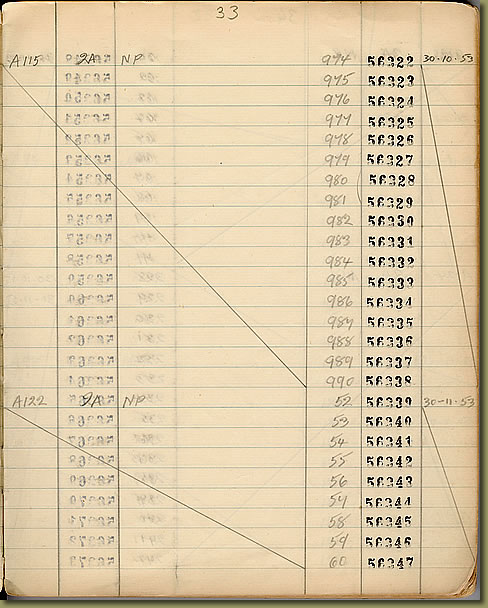 33
A115 2A NP 974 56322 30-10-53
975 56323
976 56324
977 56325
978 56326
979 56327
980 56328
981 56329
982 56330
983 56331
984 56332
985 56333
986 56334
987 56335
988 56336
989 56337
990 56338
A122 2A NP 52 56339 30-11-53
53 56340
54 56341
55 56342
56 56343
57 56344
58 56345
59 56346
60 56347